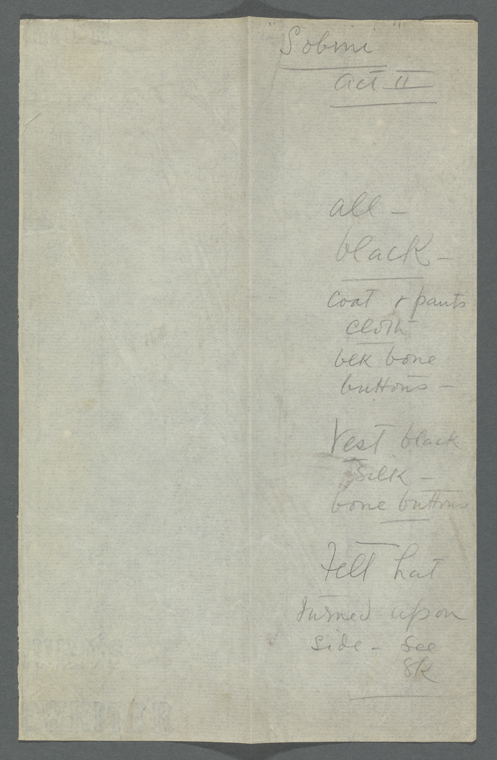 Act II
all -
black -
coat & pants
cloth
blk bone
buttons -
Vest black
Silk -
bone buttons
Felt hat
turned up on
side - See
Sk